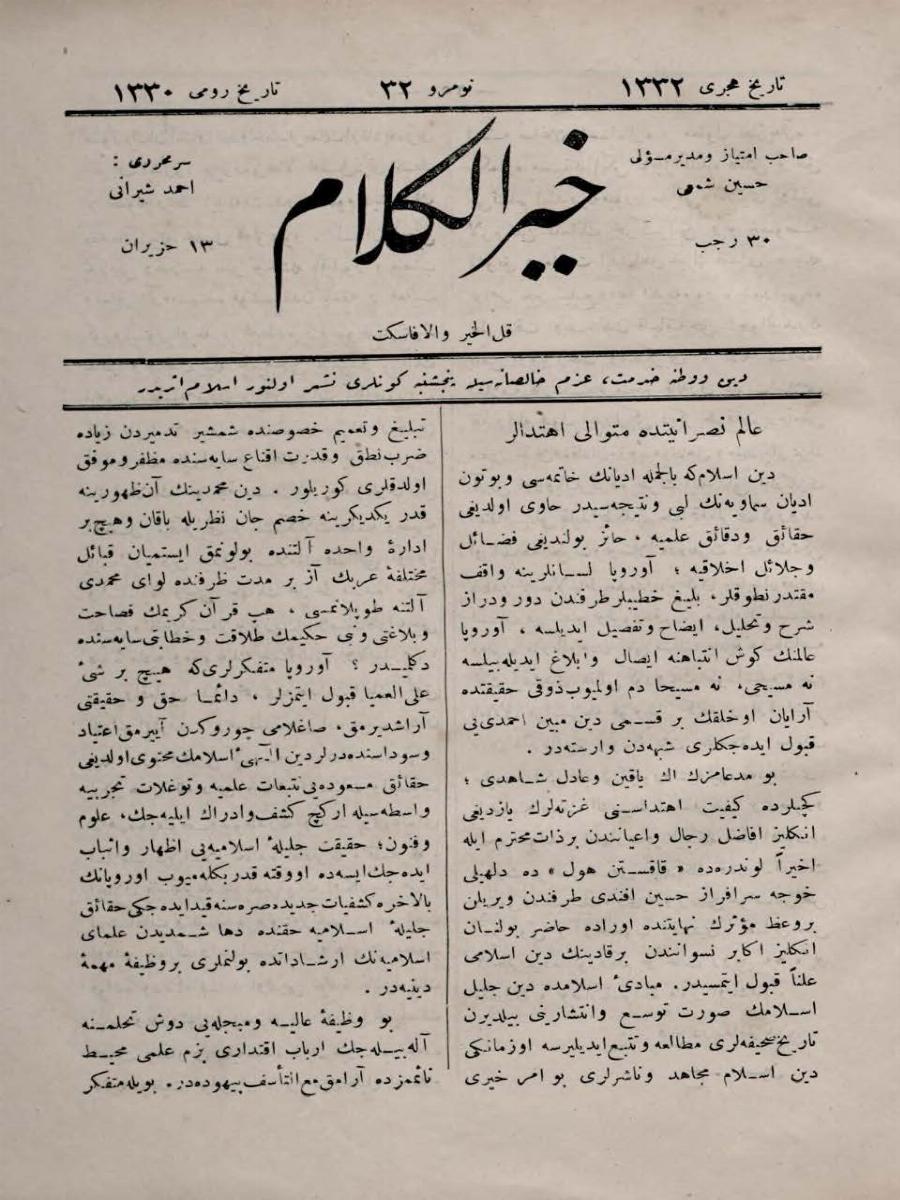 تاریخ هجری ۱۳۳۲
نومرو ۳۲
تاریخ رومی ۱۳۳۰
صاحب امتیاز ومدیر مسؤلی
حسین شمسی
۳۰ رجب
خیر الکلام
سر محرری :
احمد شیرانی
۱۳ حزیران
قل الخیر والا فاسکت
دین ووطنه خدمت، عزم خالصانه‌سیله پنجشنبه کونلری نشر اولنور اسلام اثریدر
عالم نصرانیتده متوالی اهتدالر
دین اسلام‌که بالجمله ادیانك خاتمه‌سی وبوتون
ادیان سماویه‌نك لبی ونتیجه‌سیدر حاوی اولدیغی
حقائق ودقائق علمیه ، حائز بولندیغی فضائل
وجلائل اخلاقیه ؛ آوروپا لسانلرینه واقف
مقتدر نطوقلر، بلیغ خطیبلر طرفندن دور ودراز
شرح وتحلیل، ایضاح وتفصیل ایدیلسه ، آوروپا
عالمنك کوش انتباهنه ایصال وابلاغ ایدیله‌بیلسه
نه مسیحی، نه مسیحا دم اولمیوب ذوقی حقیقتده
آرایان او خلقك بر قسمی دین مبین احمدی‌یی
قبول ایده‌جکلری شبهه‌دن وارسته‌در .
بو مدعامزك اك یاقین وعادل شاهدی ؛
کچنلرده کیفیت اهتداسنی غزته‌لرك یازدیغی
انکلیز افاضل رجال واعیانندن بر ذات محترم ایله
اخیراً لوندره‌ده « قاقستن هول » ده دلهیلی
خوجه سرافراز حسین افندی طرفندن ویریلن
بر وعظ مؤثرك نهایتنده اوراده حاضر بولنان
انکلیز اکابر نسوانندن بر قادینك دین اسلامی
علناً قبول ایتمسیدر. مبادئ اسلامده دین جلیل
اسلامك صورت توسع وانتشارینی بیلدیرن
تاریخ صحیفه‌لری مطالعه وتتبع ایدیلیرسه او زمانکی
دین اسلام مجاهد وناشرلری بو امر خیری
تبلیغ وتعمیم خصوصنده شمشیر تدمیردن زیاده
ضرب نطق وقدرت اقناع سایه‌سنده مظفر وموفق
اولدقلری کوریلور . دین محمدینك آن ظهورینه
قدر یکدیکرینه خصم جان نظریله باقان وهیچ بر
ادارهٔ واحده آلتنده بولونمق ایستمیان قبائل
مختلفهٔ عربك آز بر مدت ظرفنده لوای محمدی
آلتنه طوپلانمسی ، هپ قرآن کریمك فصاحت
وبلاغتی ونبی حکیمك طلاقت وخطابتی سایه‌سنده
دکلمیدر ؟ آوروپا متفکرلری‌که هیچ بر شیٔ
علی العمیا قبول ایتمزلر ، دائما حق و حقیقتی
آراشدیرمق، صاغلامی چوروکدن آییرمق اعتیاد
وسوداسنده‌درلر دین الٓهیٔ اسلامك محتوی اولدیغی
حقائق مسعوده‌یی تتبعات علمیه وتوغلات تجربیه
واسطه‌سیله ارکچ کشف وادراك ایلیه‌جك، علوم
وفنون؛ حقیقت جلیلهٔ اسلامیه‌یی اظهار واثبات
ایده‌جك ایسه‌ده او وقته قدر بکله‌میوب اوروپانك
بالاخره کشفیات جدیده صره‌سنه قید ایده‌جکی حقائق
جلیلهٔ اسلامیه حقنده دها شمدیدن علمای
اسلامیه‌نك ارشاداتده بولنملری بر وظیفهٔ مهمهٔ
دینیه‌در .
بو وظیفهٔ عالیه ومبجله‌یی دوش تحملنه
آله‌بیله‌جك ارباب اقتداری بزم علمی محیط
نائمزده آرامق مع التأسف بیهوده‌در. بویله متفکر